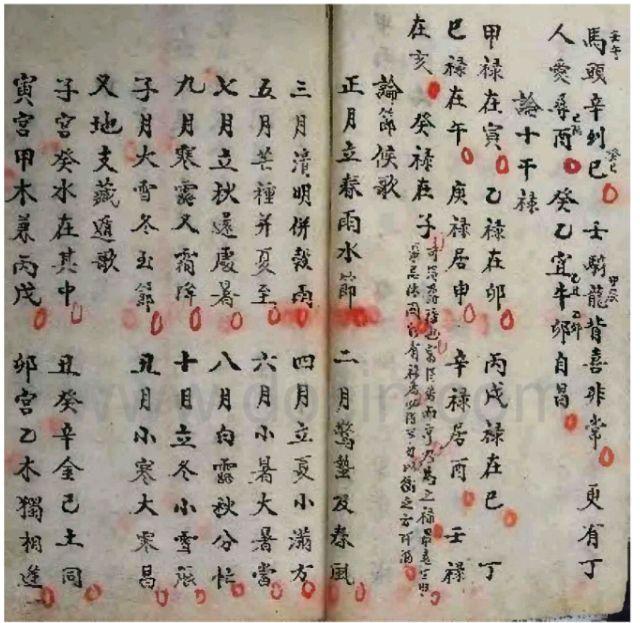 馬頭辛列巳 壬騎龍背喜非常 更有丁
人愛尋酉 癸乙宜牛卯自昌
論十干禄
甲禄在寅 乙禄在卯 丙戊禄在巳 丁
巳禄在午 庚禄居申 辛禄居酉 壬禄
在亥 癸禄在子
論節候歌
正月立春雨水節 二月驚蟄及春風
三月清明併穀雨 四月立夏小滿方
五月芒種并夏至 六月小暑大暑當
七月立秋還處暑 八月白露秋分忙
九月寒露又霜降 十月立冬小雪張
子月大雪冬至節 丑月小寒大寒昌
又地支藏遁歌
子宮癸水在其中 丑癸辛金己土同
寅宮甲木兼丙戊 卯宮乙木獨相逢